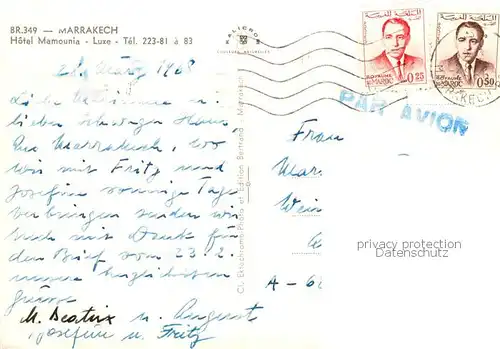 BR.349 — MARRAKECH
Hôtel Mamounia - Luxe - Tél. 223-81 à 83
März 1968
Liebe u.
lieber Schwager Hans!
Aus Marrakech, wo
wir mit Fritz und
Josefine sonnige Tage
verbringen senden wir
Euch mit Dank für
den Brief vom 23.2.
unsere herzlichsten
Grüsse
M. Beatrix u. August
Josefine u. Fritz
Cl. Ektachrome-Photo et Edition Bertrand - Marrakech
ROYAUME DU MAROC
0,25
ROYAUME DU MAROC
0,50
PAR AVION
Frau
Mar
Wein
A - 6
privacy protection
Datenschutz